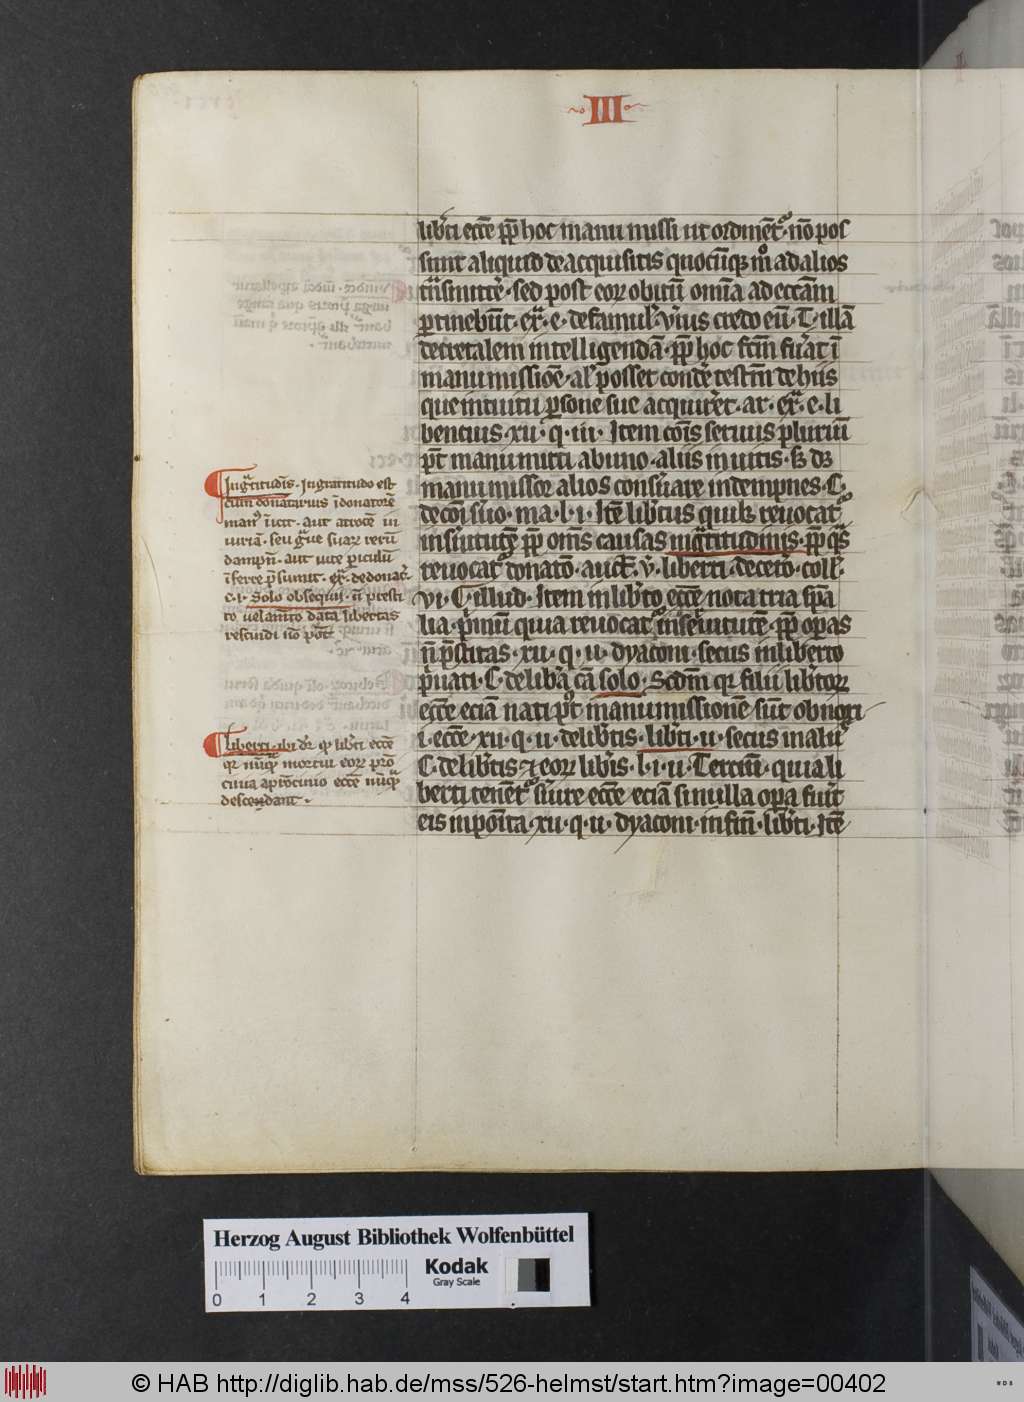 III
libti ecce pp hoc manu missi ut ordinet · nō pos
sunt aliquid de acquisitis quocūq mō ad alios
tnsmitte · sed post eoꝝ obitū omīa ad eccām
ptinebūt · ex · e · de famul · vius credo eū · T · illā
decretalem intelligendā · pp hoc fcm fuat ī
manu missiōe · al posset conde testm de hiis
que intuitu psone sue acquiret · ar · ex · e · li
bencius · xii · q · iii · Item cōis seruus pluriū
pt manu mitti ab uno · aliis inuitis · sꝫ dꝫ
manu missor alios consuare indempnes · C ·
de cōi suo · ma · l · i · Itē libtus quilꝫ reuocat
in suitutē pp oms causas ingtitudinis · pp qs
reuocat donatō · auct · v · liberti · decetō · coll ·
vi · C · illud · Item in libto ecce nota tria spa
lia · pmū quia reuocat in seruitutē · pp opas
n pstitas · xii · q · ii · dyaconi · secus in liberto
puati · C · de liba cā solo · Scdm qr filii libtoꝝ
ecce eciā nati pt manumissionē sūt obnoxi
i · ecce · xii · q · ii · de libtis · libti · ii · secus in aliis
C · de libtis et eoꝝ libis · l · i · ii · Terciū · quia li
berti tenet suire ecce eciā si nulla opa fuit
eis inpoita · xii · q · ii · dyaconi · in fin · libti · Itē
Ingtitudīs · Ingratitudo est
cum donatarius ī donatorē
man iicit · aut atrocē in
iuriā · seu gue suaꝝ rerū
dampn · aut uite piculū
īferre psumit · ex · de donac
c · i · Solo obsequii · n presti
to uelamto data libertas
rescindi nō pot
Liberti · ibi dr q libti ecce
qr nūq moritur eoꝝ pro
cuia a proncinio ecce nūq
descendant ·
Herzog August Bibliothek Wolfenbüttel
Kodak
Gray Scale
0 1 2 3 4
© HAB http://diglib.hab.de/mss/526-helmst/start.htm?image=00402